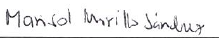 Marisol Murillo Sánchez